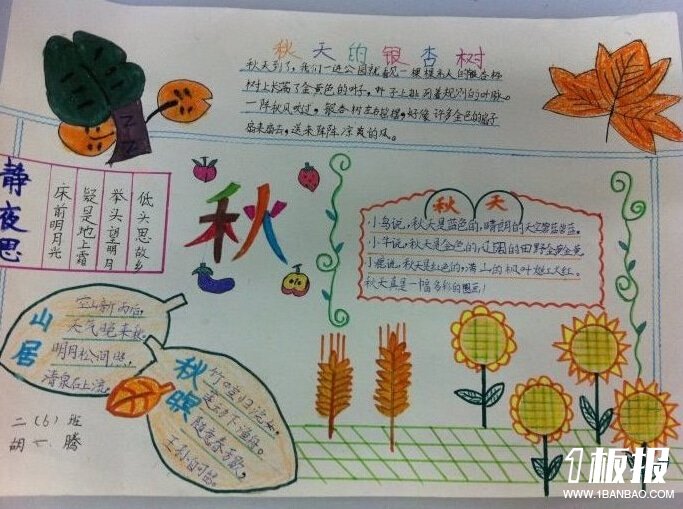 秋天的银杏树
秋天到了，我们一进公园就看见一棵棵高大的银杏树
树上长满了金黄色的叶子，叶子上排列着规则的叶脉。
一阵秋风吹过，银杏树左右摇摆，好像许多金色的扇子
扇来扇去，送来阵阵凉爽的风。
静夜思
床前明月光
疑是地上霜
举头望明月
低头思故乡
秋
秋天
小鸟说，秋天是蓝色的，晴朗的天空蓝莹莹。
小牛说，秋天是金色的，辽阔的田野金黄金黄
小鹿说，秋天是红色的，满山的枫叶火红火红。
秋天真是一幅多彩的图画！
山居
空山新雨后，
天气晚来秋。
明月松间照，
清泉石上流。
秋暝
竹喧归浣女，
莲动下渔舟。
随意春芳歇，
王孙自可留。
二(6)班
胡一腾
1板报
WWW.1BANBAO.COM